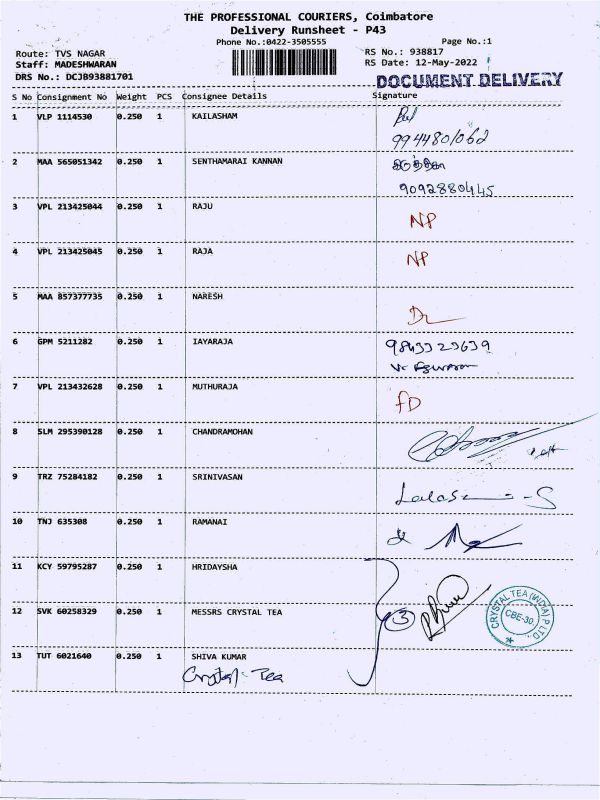 THE PROFESSIONAL COURIERS, Coimbatore
Delivery Runsheet - P43
Phone No.:0422-3505555
Page No.:1
Route: TVS NAGAR
RS No.: 938817
Staff: MADESHWARAN
RS Date: 12-May-2022
DRS No.: DCJB93881701
DOCUMENT DELIVERY
S No Consignment No Weight PCS Consignee Details Signature
1 VLP 1114530 0.250 1 KAILASHAM
9944801062
2 MAA 565051342 0.250 1 SENTHAMARAI KANNAN
9092880445
3 VPL 213425044 0.250 1 RAJU NP
4 VPL 213425045 0.250 1 RAJA NP
5 MAA 857377735 0.250 1 NARESH
6 GPM 5211282 0.250 1 IAYARAJA
7 VPL 213432628 0.250 1 MUTHURAJA fD
8 SLM 295390128 0.250 1 CHANDRAMOHAN
9 TRZ 75284182 0.250 1 SRINIVASAN
10 TNJ 635308 0.250 1 RAMANAI
11 KCY 59795287 0.250 1 HRIDAYSHA
12 SVK 60258329 0.250 1 MESSRS CRYSTAL TEA 3
CRYSTAL TEA (INDIA) P LTD.
CBE-30
13 TUT 6021640 0.250 1 SHIVA KUMAR
Crystal Tea